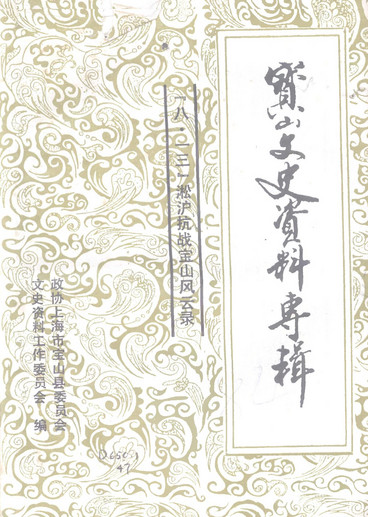 寶山文史資料專輯
“八·一三”淞沪抗战宝山风云录
政协上海市宝山县委员会
文史资料工作委员会 编
D650.1
47